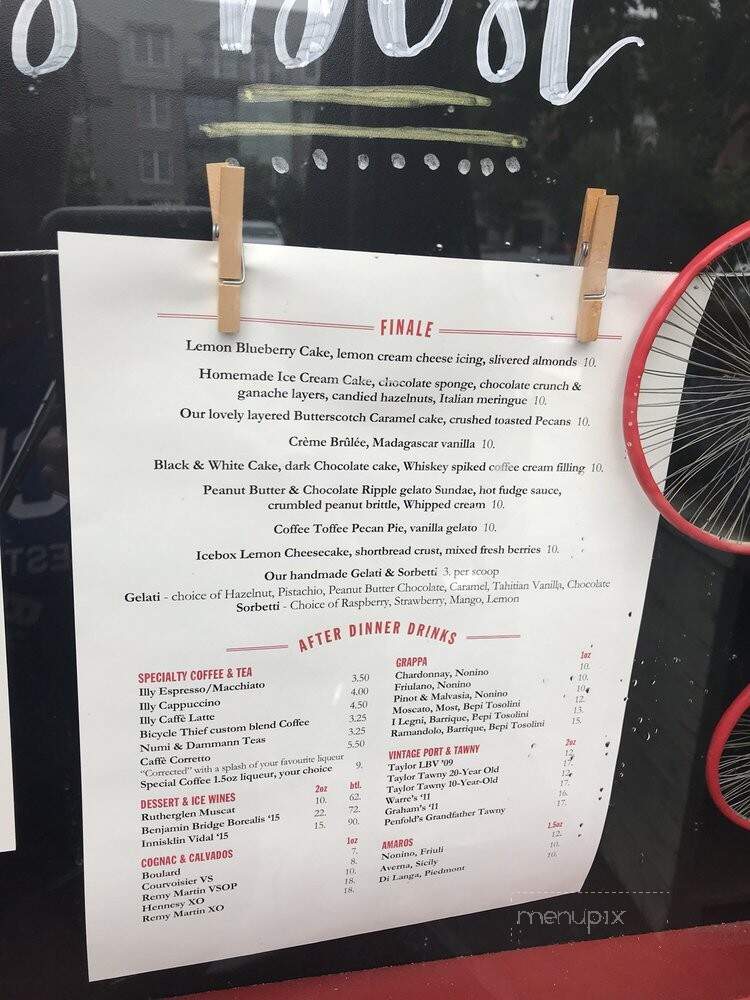 FINALE
Lemon Blueberry Cake, lemon cream cheese icing, slivered almonds 10.
Homemade Ice Cream Cake, chocolate sponge, chocolate crunch &
ganache layers, candied hazelnuts, Italian meringue 10.
Our lovely layered Butterscotch Caramel cake, crushed toasted Pecans 10.
Crème Brûlée, Madagascar vanilla 10.
Black & White Cake, dark Chocolate cake, Whiskey spiked coffee cream filling 10.
Peanut Butter & Chocolate Ripple gelato Sundae, hot fudge sauce,
crumbled peanut brittle, Whipped cream 10.
Coffee Toffee Pecan Pie, vanilla gelato 10.
Icebox Lemon Cheesecake, shortbread crust, mixed fresh berries 10.
Our handmade Gelati & Sorbetti 3. per scoop
Gelati - choice of Hazelnut, Pistachio, Peanut Butter Chocolate, Caramel, Tahitian Vanilla, Chocolate
Sorbetti - Choice of Raspberry, Strawberry, Mango, Lemon
AFTER DINNER DRINKS
SPECIALTY COFFEE & TEA
Illy Espresso/Macchiato 3.50
Illy Cappuccino 4.00
Illy Caffè Latte 4.50
Bicycle Thief custom blend Coffee 3.25
Numi & Dammann Teas 3.25
Caffè Corretto 5.50
"Corrected" with a splash of your favourite liqueur
Special Coffee 1.5oz liqueur, your choice 9.
DESSERT & ICE WINES 2oz btl.
Rutherglen Muscat 10. 62.
Benjamin Bridge Borealis '15 22. 72.
Inniskllin Vidal '15 15. 90.
COGNAC & CALVADOS 1oz
Boulard 7.
Courvoisier VS 8.
Remy Martin VSOP 10.
Hennesy XO 18.
Remy Martin XO 18.
GRAPPA 1oz
Chardonnay, Nonino 10.
Friulano, Nonino 10.
Pinot & Malvasia, Nonino 10.
Moscato, Most, Bepi Tosolini 12.
I Legni, Barrique, Bepi Tosolini 13.
Ramandolo, Barrique, Bepi Tosolini 15.
VINTAGE PORT & TAWNY 2oz
Taylor LBV '09 12.
Taylor Tawny 20-Year Old 17.
Taylor Tawny 10-Year-Old 12.
Warre's '11 17.
Graham's '11 16.
Penfold's Grandfather Tawny 17.
AMAROS 1.5oz
Nonino, Friuli 12.
Averna, Sicily 10.
Di Langa, Piedmont 10.
menupix